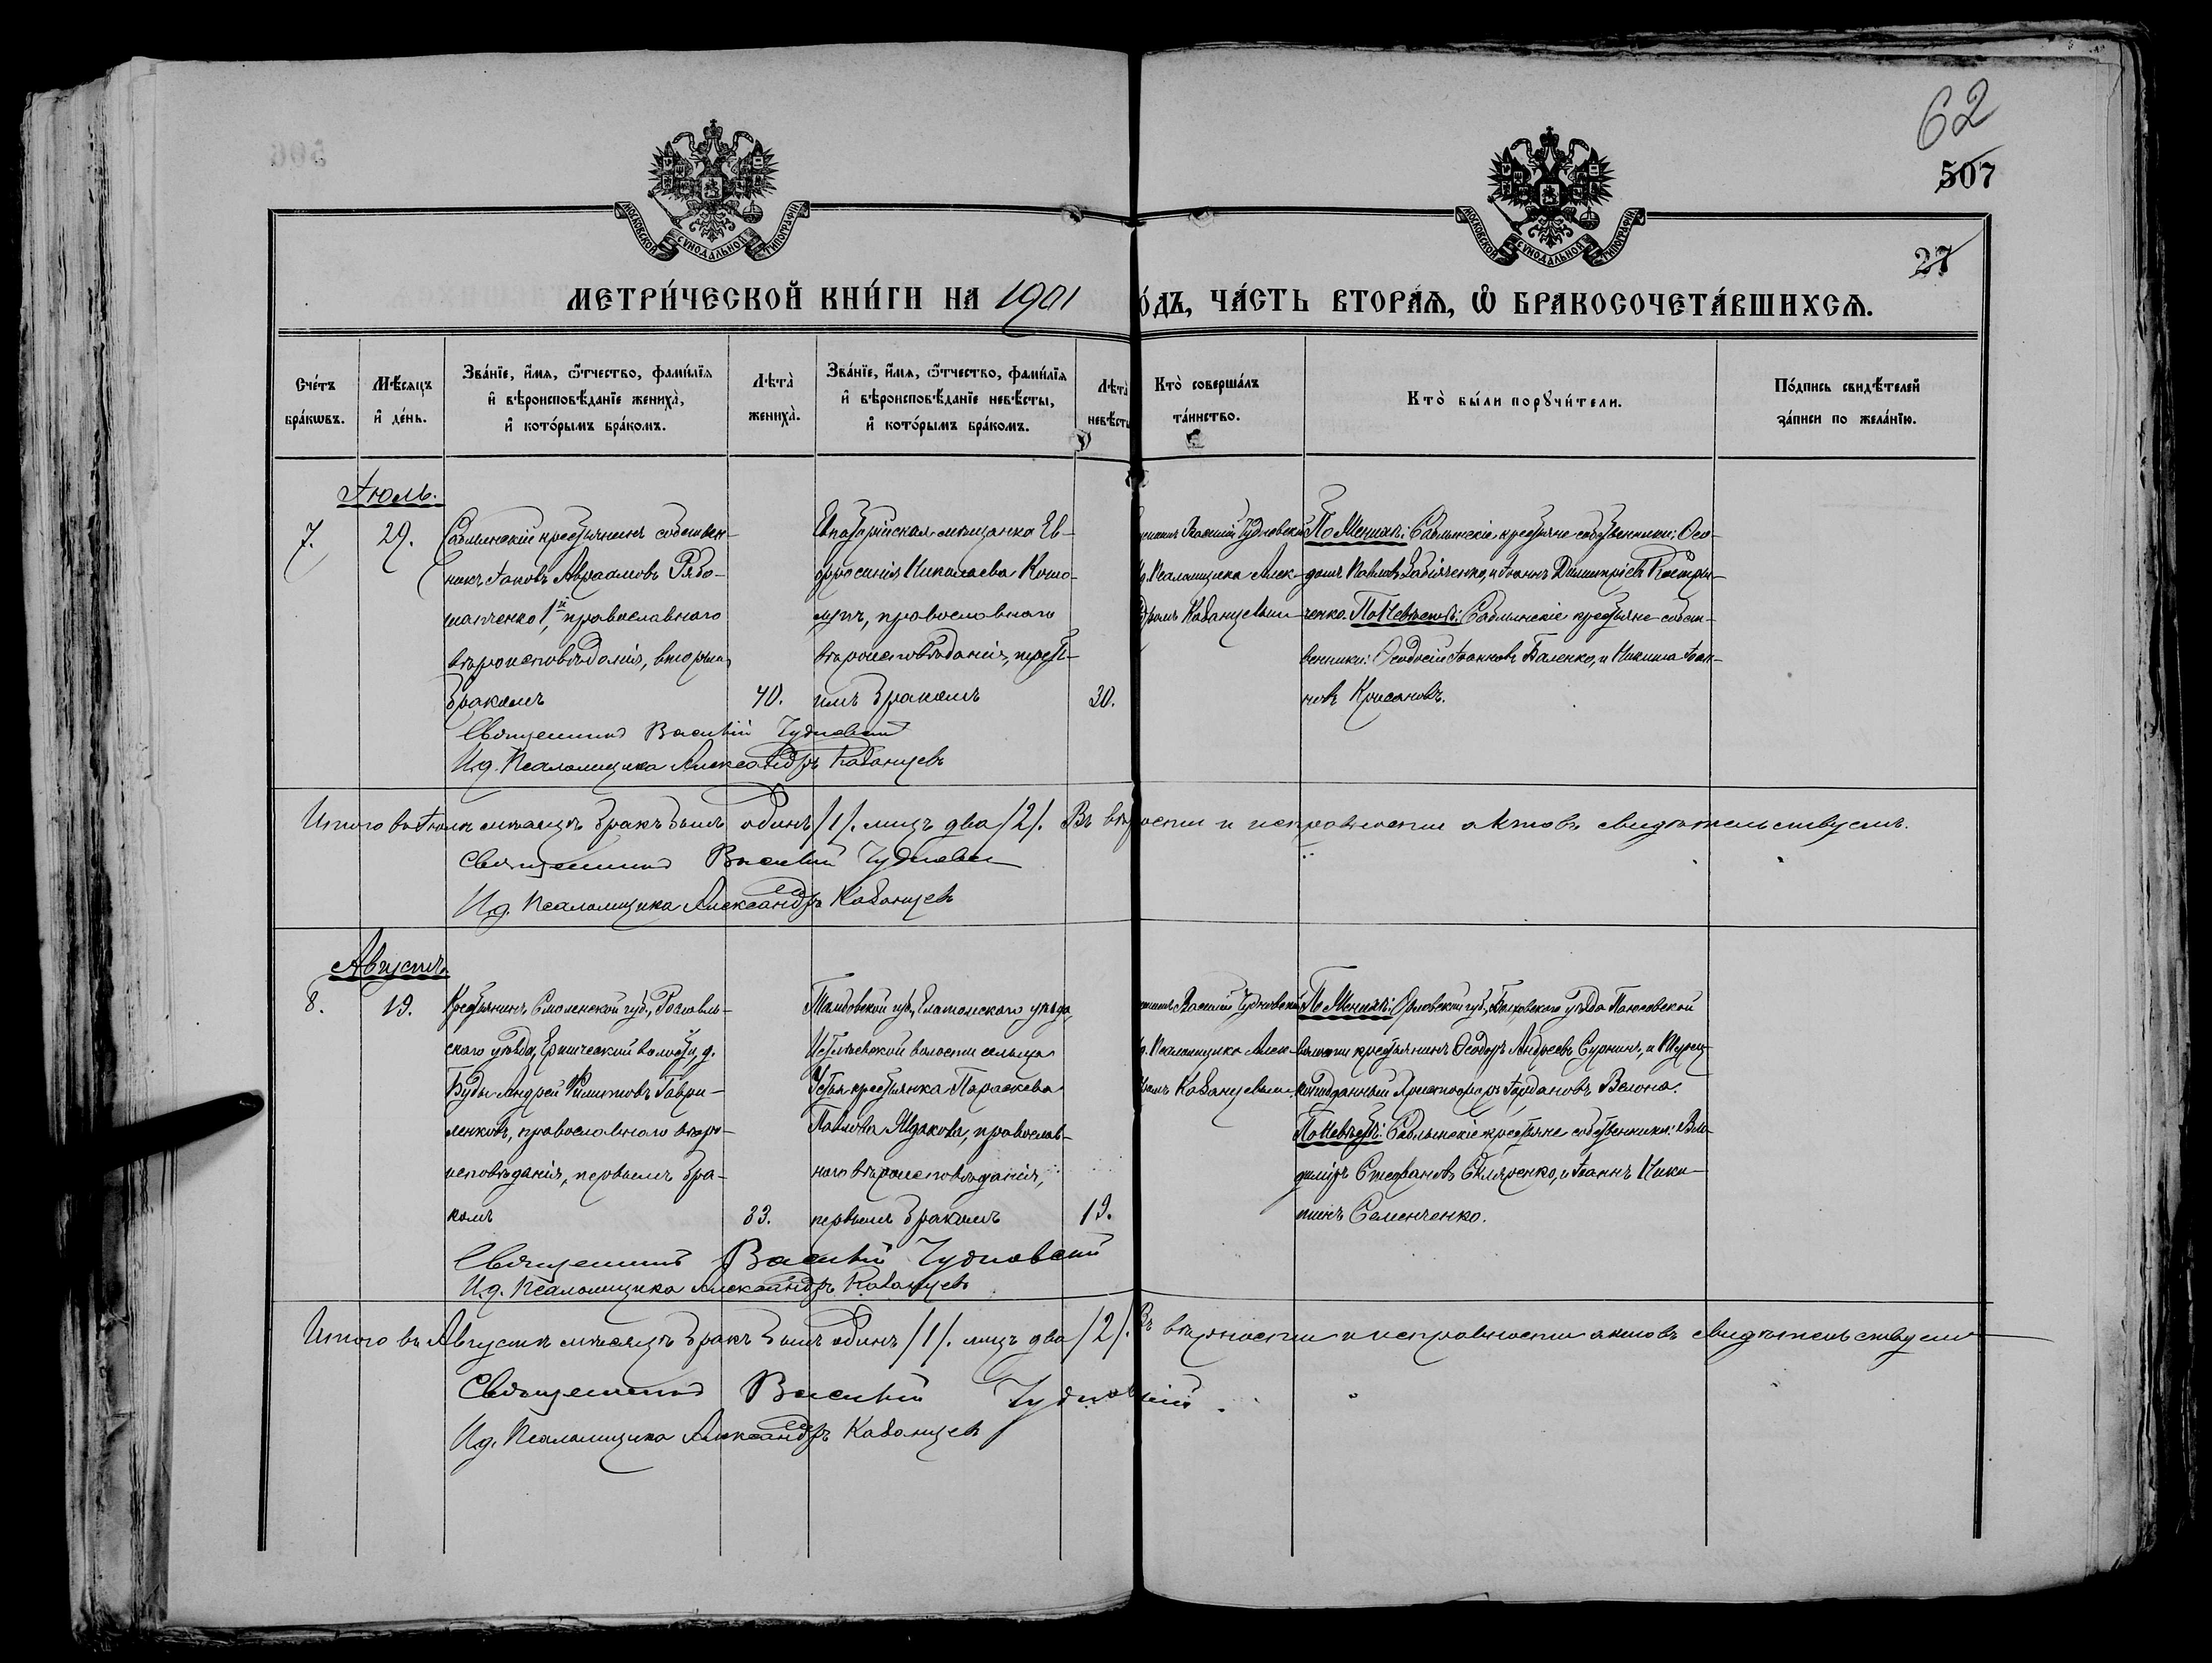 62
507
27
МОСКОВСКОЙ СѴНОДАЛЬНОЙ ТИПОГРАФІИ
МОСКОВСКОЙ СѴНОДАЛЬНОЙ ТИПОГРАФІИ
МЕТРИ́ЧЕСКОЙ КНИ́ГИ НА 1901
О́ДЪ, ЧА́СТЬ ВТОРА́Ѧ, Ѽ БРАКОСОЧЕТА́ВШИХСѦ.
Сче́тъ бра́кѡвъ.
Мѣ́сяцъ и҆ де́нь.
Зва́нїе, и҆́мѧ, ѻ҆́тчество, фами́лїѧ
и҆ вѣроисповѣ́данїе жениха̀,
и҆ кото́рымъ бра́комъ.
Лѣта̀ жениха̀.
Зва́нїе, и҆́мѧ, ѻ҆́тчество, фами́лїѧ
и҆ вѣроисповѣ́данїе невѣ́сты,
и҆ кото́рымъ бра́комъ.
Лѣта̀ невѣ́сты
Кто̀ соверша́лъ та́инство.
Кто̀ бы́ли порꙋчи́тели.
По́дпись свидѣ́телей за́писи по жела́нїю.
Іюль.
7.
29.
Саблынскій крестьянинъ собствен-
никъ Іаковъ Авраамовъ Рябо-
шапченко 1й, православнаго
вѣроисповѣданія, вторымъ
бракомъ
40.
Евпаторійская мѣщанка Ев-
фросинія Николаева
православнаго
вѣроисповѣданія, треть-
имъ бракомъ
30.
Василій Чудновскій
Псаломщика Алек-
Кованцевымъ
По Женихѣ: Саблынскіе крестьяне собственники: Ѳео-
доръ Павловъ Забіяченко, и Іоаннъ Димитріевъ
ченко. По Невѣстѣ: Саблынскіе крестьяне собст-
венники: Ѳеодосій Іоанновъ Баленко, и Никита Іоан-
новъ Крисановъ.
Священникъ Василій Чудновскій
И.д. Псаломщика Александръ Кованцевъ
Итого въ Іюлѣ мѣсяцѣ бракъ былъ одинъ /1/. лицъ два /2/. Въ вѣрности и исправности актовъ свидѣтельствуемъ.
Священникъ Василій Чудновскій
И.д. Псаломщика Александръ Кованцевъ
Августъ.
8.
19.
Крестьянинъ Смоленской губ., Рославль-
скаго уѣзда, Ершичской волости, д.
Буды Андрей Филиповъ Гаври-
ленковъ, православнаго вѣро-
исповѣданія, первымъ бра-
комъ
33.
Тамбовской губ., Елатомскаго уѣзда,
волости сельца
Устья крестьянка Параскева
Павлова Жданова, православ-
наго вѣроисповѣданія,
первымъ бракомъ
19.
Василій Чудновскій
Псаломщика Алек-
Кованцевымъ.
По Женихѣ: Орловской губ., Болховскаго уѣзда
волости крестьянинъ Ѳеодоръ Андреевъ Сурнинъ, и Турец-
коподданный Христофоръ Іордановъ Велона.
По Невѣстѣ: Саблынскіе крестьяне собственники: Вла-
диміръ Стефановъ Скляренко, и Іоаннъ Ники-
тинъ Семенченко.
Священникъ Василій Чудновскій
И.д. Псаломщика Александръ Кованцевъ
Итого въ Августѣ мѣсяцѣ бракъ былъ одинъ /1/. лицъ два /2/. Въ вѣрности и исправности актовъ свидѣтельствуемъ
Священникъ Василій Чудновскій.
И.д. Псаломщика Александръ Кованцевъ